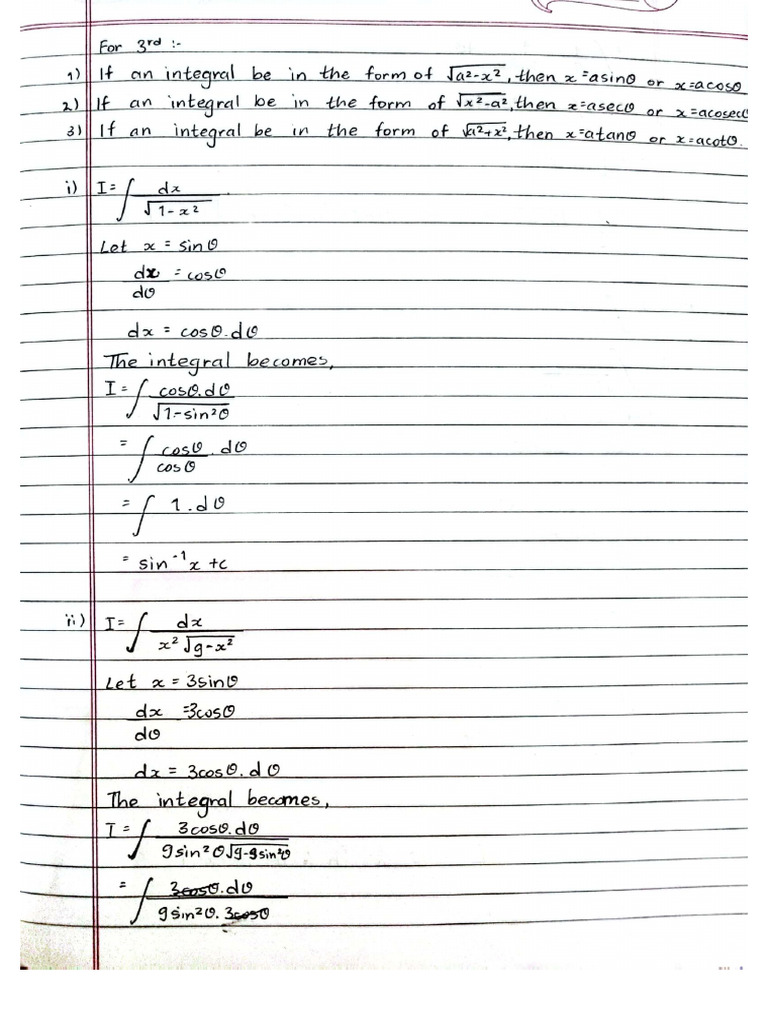 For 3rd :-
1) If an integral be in the form of √(a²-x²), then x=asinθ or x=acosθ
2) If an integral be in the form of √(x²-a²), then x=asecθ or x=acosecθ
3) If an integral be in the form of √(a²+x²), then x=atanθ or x=acotθ.
i) I = ∫ dx / √(1-x²)
Let x = sinθ
dx/dθ = cosθ
dx = cosθ.dθ
The integral becomes,
I = ∫ cosθ.dθ / √(1-sin²θ)
= ∫ cosθ/cosθ . dθ
= ∫ 1.dθ
= sin⁻¹x +c
ii) I = ∫ dx / x²√(9-x²)
Let x = 3sinθ
dx/dθ = 3cosθ
dx = 3cosθ.dθ
The integral becomes,
I = ∫ 3cosθ.dθ / 9sin²θ√(9-9sin²θ)
= ∫ 3cosθ.dθ / 9sin²θ.3cosθ